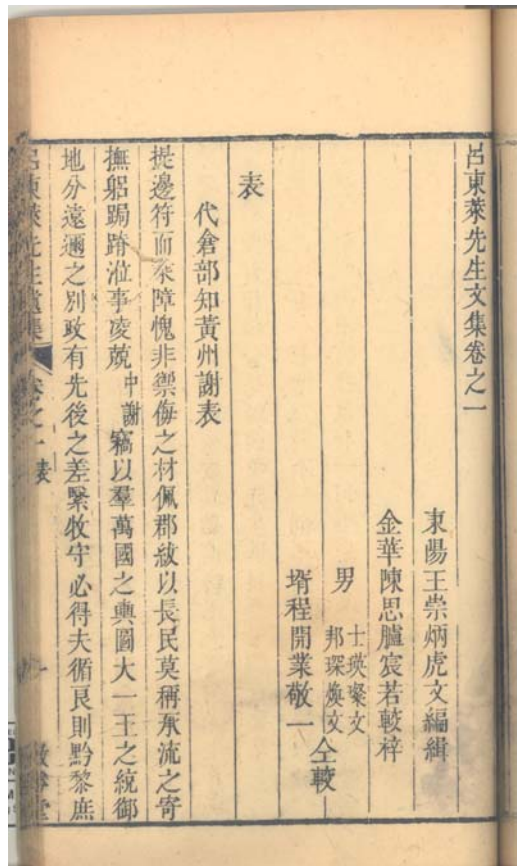 呂東萊先生文集卷之一
東陽王崇炳虎文編緝
金華陳思臚宸若較梓
男
士瑛璨文
邦琛煥文
仝較
壻程開業敬一
表
代倉部知黃州謝表
提邊符而乘障愧非禦侮之材佩郡紱以長民莫稱承流之寄
撫躬跼蹐涖事凌兢中謝竊以羣萬國之輿圖大一王之統御
地分遠邇之別政有先後之差緊牧守必得夫循良則黔黎庶
呂東萊先生文集
卷之一 表